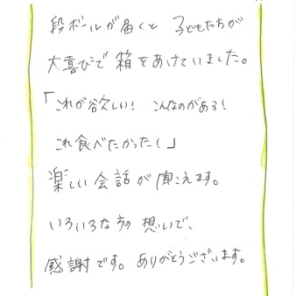 段ボールが届くと 子どもたちが
大喜びで 箱をあけていました。
「これが欲しい! こんなのがある!
これ食べたかった!」
楽しい会話が聞こえます。
いろいろな方の 想いで、
感謝です。ありがとうございます。